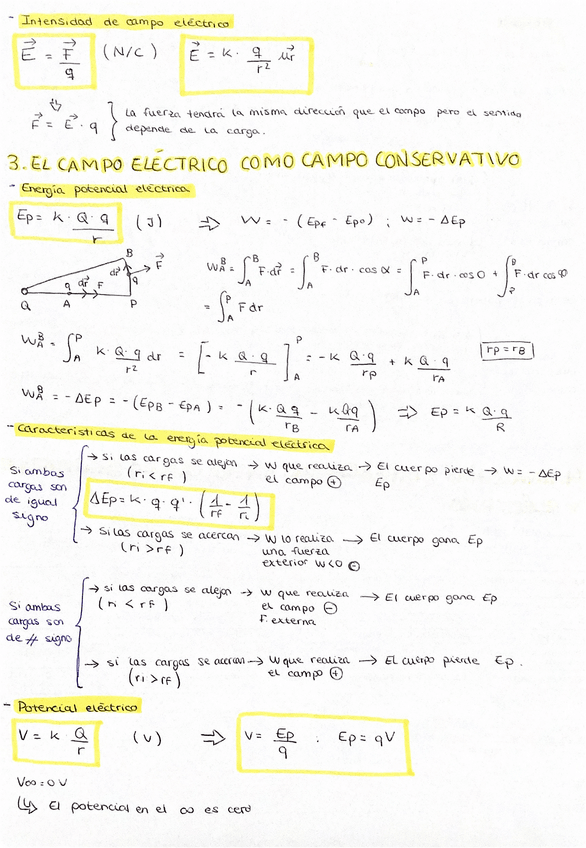 - Intensidad de campo eléctrico
E⃗ = F⃗/q (N/C) E⃗ = K · q/r² u⃗r
F⃗ = E⃗ · q } La fuerza tendrá la misma dirección que el campo pero el sentido
depende de la carga.
3. EL CAMPO ELÉCTRICO COMO CAMPO CONSERVATIVO
- Energía potencial eléctrica
Ep = K · Q · q/r (J) ⇒ W = - (Epf - Epo) ; W = - ΔEp
B
dr⃗ F⃗
q
q dr⃗ F
Q A P
W_A^B = ∫_A^B F · dr⃗ = ∫_A^B F · dr · cos α = ∫_A^P F · dr · cos 0 + ∫_P^B F · dr cos φ
= ∫_A^P F dr
W_A^B = ∫_A^P K · Q · q/r² dr = [- K Q · q/r]_A^P = - K Q · q/rp + K Q · q/rA rp = rB
W_A^B = - ΔEp = - (EpB - EpA) = - (K · Q q/rB - K Q q/rA) ⇒ Ep = K Q · q/R
- Características de la energía potencial eléctrica
Si ambas cargas son de igual signo
→ si las cargas se alejan → W que realiza → El cuerpo pierde → W = - ΔEp
(ri < rf) el campo ⊕ Ep
ΔEp = K · q · q' · (1/rf - 1/ri)
→ Si las cargas se acercan → W lo realiza → El cuerpo gana Ep
(ri > rf) una fuerza
exterior W<0 ⊖
Si ambas cargas son de ≠ signo
→ si las cargas se alejan → W que realiza → El cuerpo gana Ep
(ri < rf) el campo ⊖
F. externa
→ si las cargas se acercan → W que realiza → El cuerpo pierde Ep.
(ri > rf) el campo ⊕
- Potencial eléctrico
V = K · Q/r (V) ⇒ V = Ep/q : Ep = qV
V∞ = 0 V
↳ El potencial en el ∞ es cero